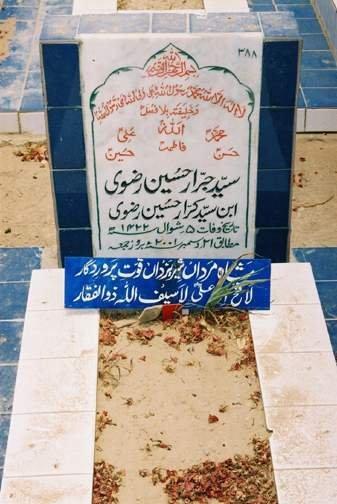 ۳۸۸
بسم اللہ الرحمن الرحیم
لا الہ الا اللہ محمد رسول اللہ علی ولی اللہ وصی رسول اللہ
وخلیفتہ بلا فصل
محمد اللہ علی
حسن فاطمہ حسین
سید جرار حسین رضوی
ابن سید کرار حسین رضوی
تاریخ وفات ۵ شوال ۱۴۲۲ھ
مطابق ۲۱ دسمبر ۲۰۰۱ء بروز جمعہ
شاہ مرداں شیر یزداں قوت پروردگار
لا فتی الا علی لا سیف الا ذوالفقار